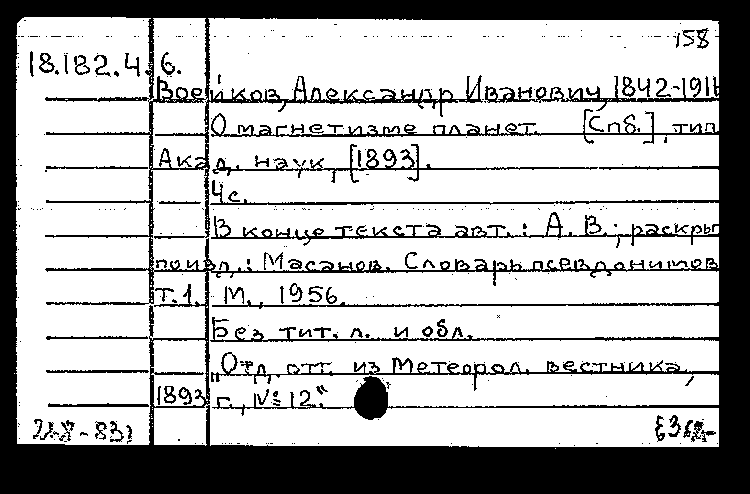 158
18.182.4.6.
Воейков, Александр Иванович, 1842-1916
О магнетизме планет. [Спб.], тип.
Акад. наук, [1893].
4с.
В конце текста авт.: А. В.; раскры
по изд.: Масанов. Словарь псевдонимов
т.1. М., 1956.
Без тит. л. и обл.
„Отд. отт. из Метеорол. вестника,
1893 г., №12."